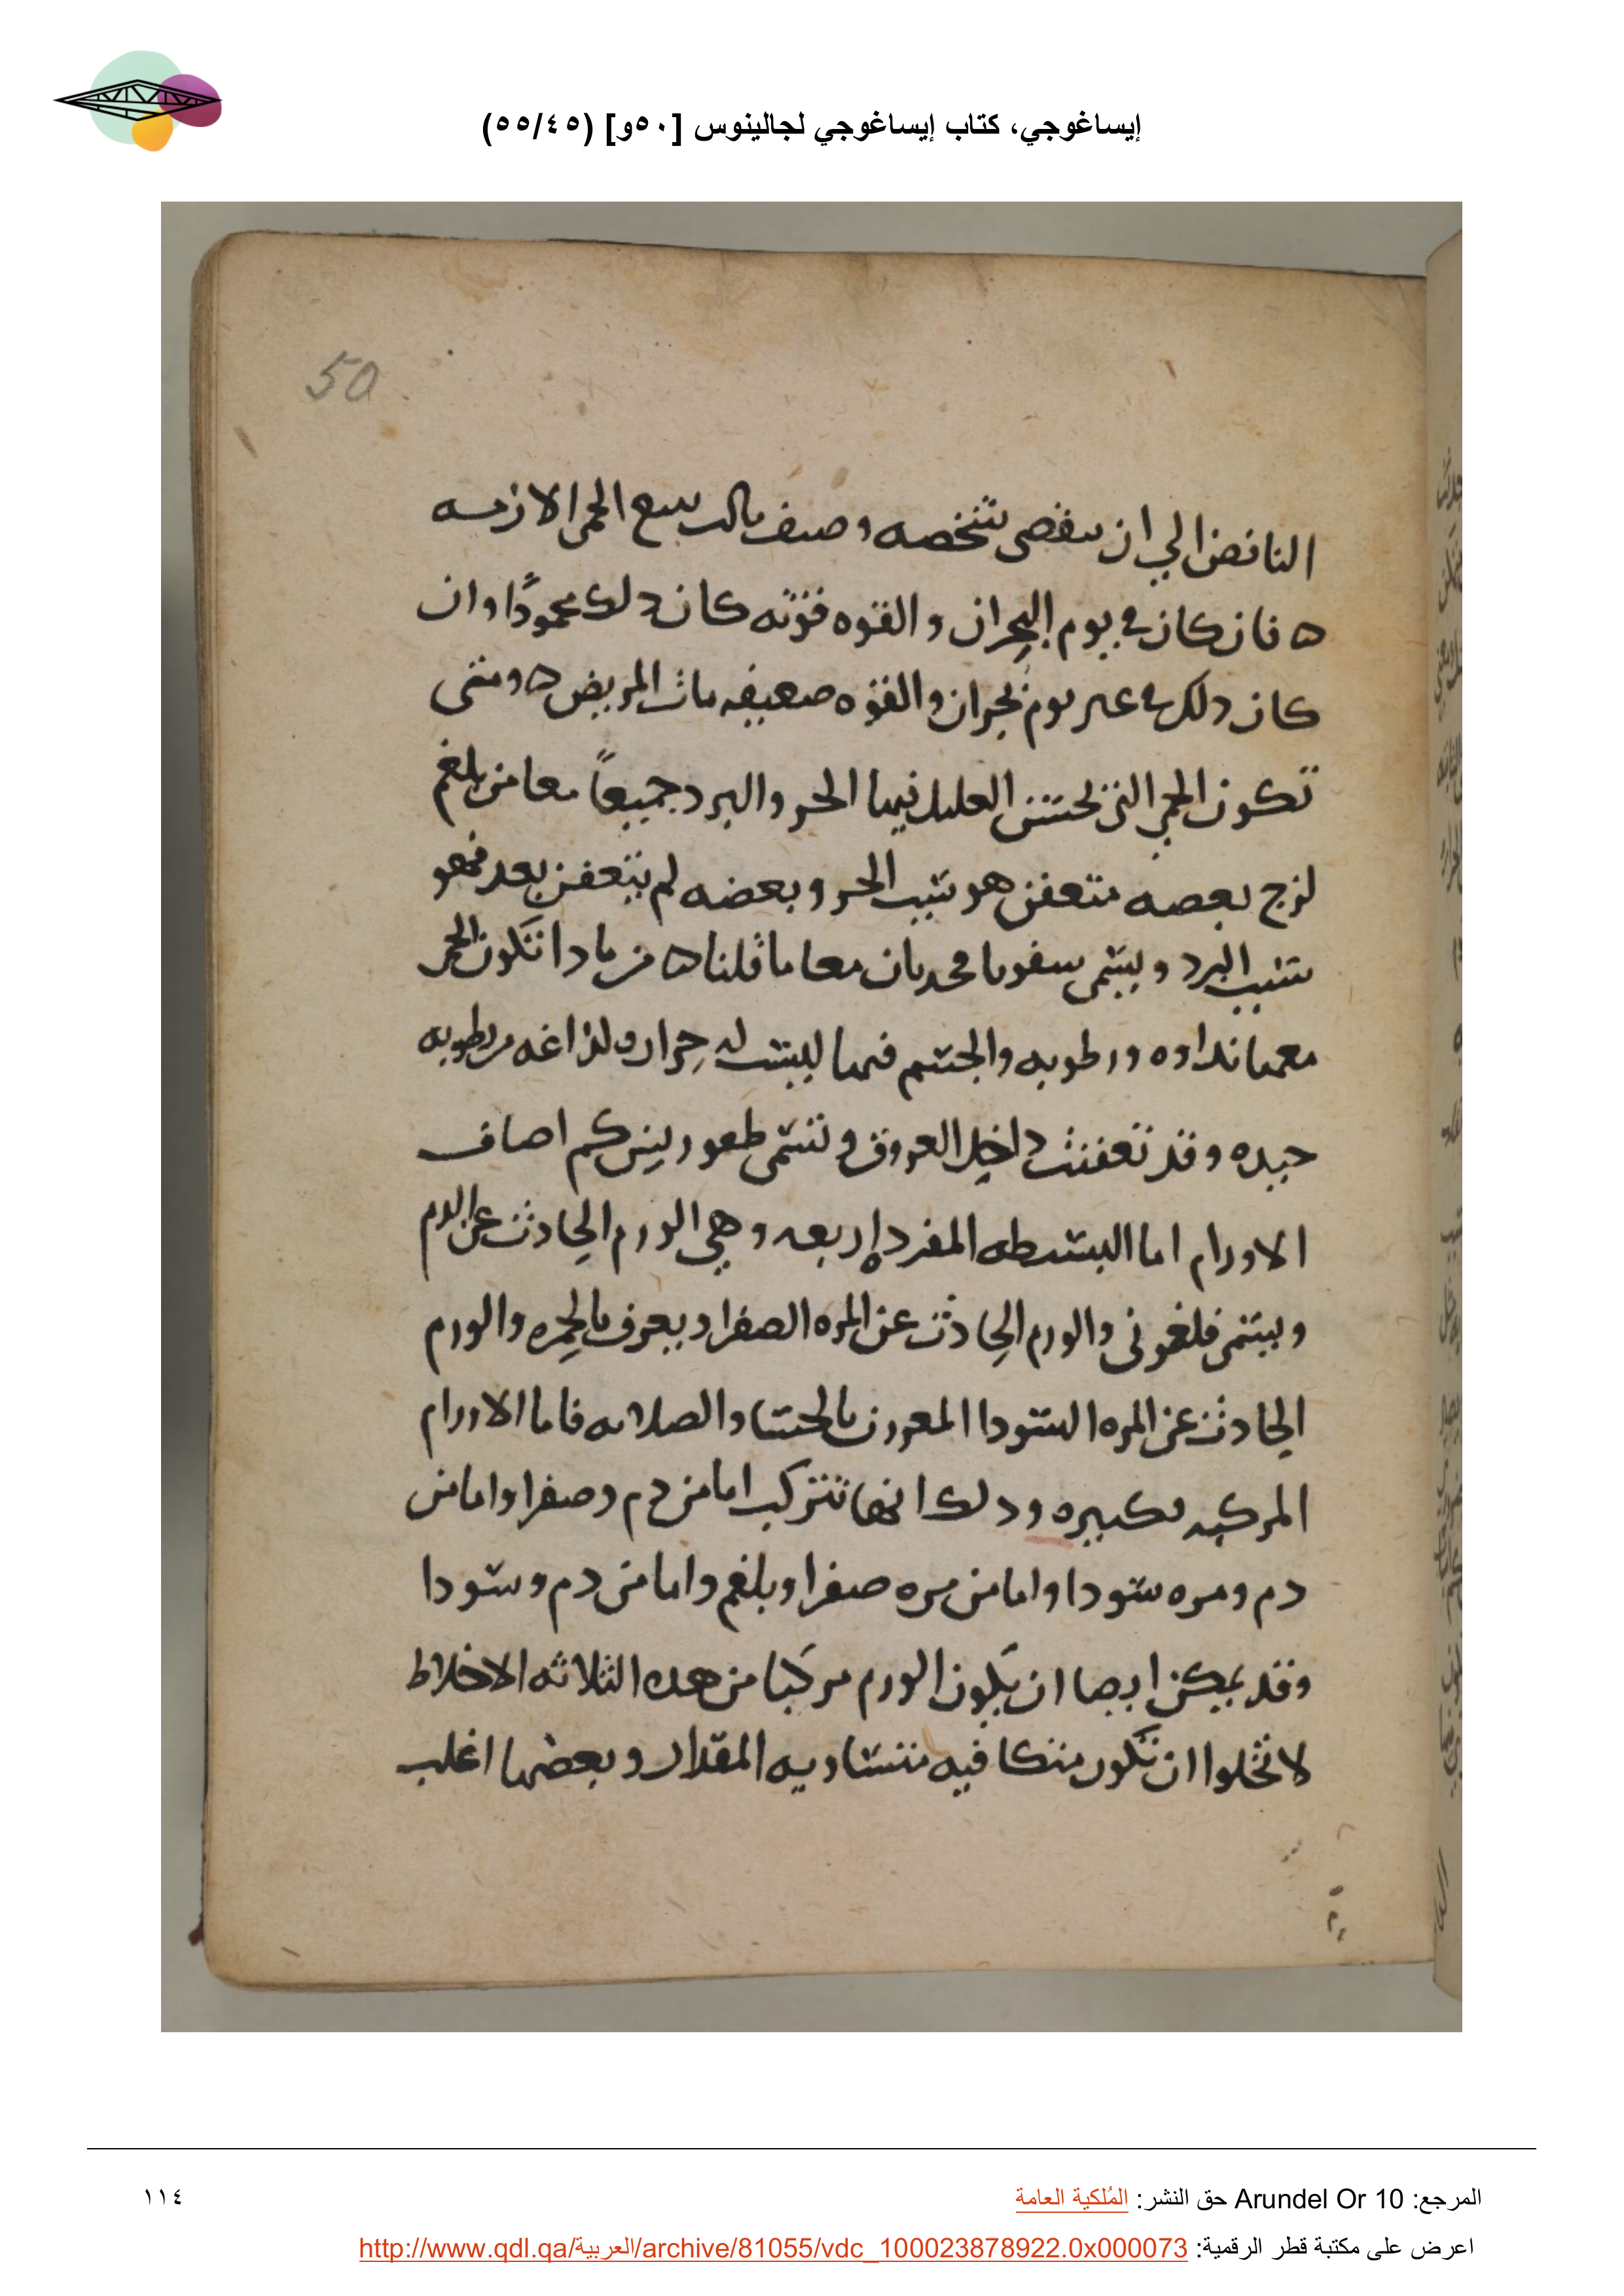 إيساغوجي، كتاب إيساغوجي لجالينوس [٥٠و] (٥٥/٤٥)
50
النافض الي ان سقصى شخصه وصنف بالد سع الحمى الازمه
ه فان كان في يوم البحران والقوه قويه كان دلك محمودًا وان
كان دلك في عىر يوم بحران والقوه صعيفه مات المريض ه ومتى
تكون الحمى التي يحسّ العليل فيها الحر والبرد جميعاً معا من بلغم
لزج بعصه متعفن هو سبب الحر وبعضه لم يتعفن بعد فهو
سبب البرد ويسمى معا ما قلنا ه من مادا تكون الحمى
معها نداوه ورطوبه والجسم فيها ليست له حراره لداغه من رطوبه
جيده وقد تعفنت داخل العروق وتسمى كم اصناف
الاورام اما البسيطه المفرده اربعه وهي الورم الحادث عن الدم
ويسمى فلغموني والورم الحادث عن المره الصفرا ويعرف بالحمره والورم
الحادث عن المره السودا المعروف بالجسا والصلابه فاما الاورام
المركبه فكثيره ودلك انها تتركب اما من دم وصفرا واما من
دم ومره سودا واما من مره صفرا وبلغم واما من دم وسودا
وقد يمكن ايصا ان يكون الورم مركبا من هده الثلاثه الاخلاط
لا تخلوا ان تكون متكافيه متساويه المقدار وبعضها اغلب
المرجع: Arundel Or 10 حق النشر: المُلكية العامة
١١٤
اعرض على مكتبة قطر الرقمية: http://www.qdl.qa/العربية/archive/81055/vdc_100023878922.0x000073